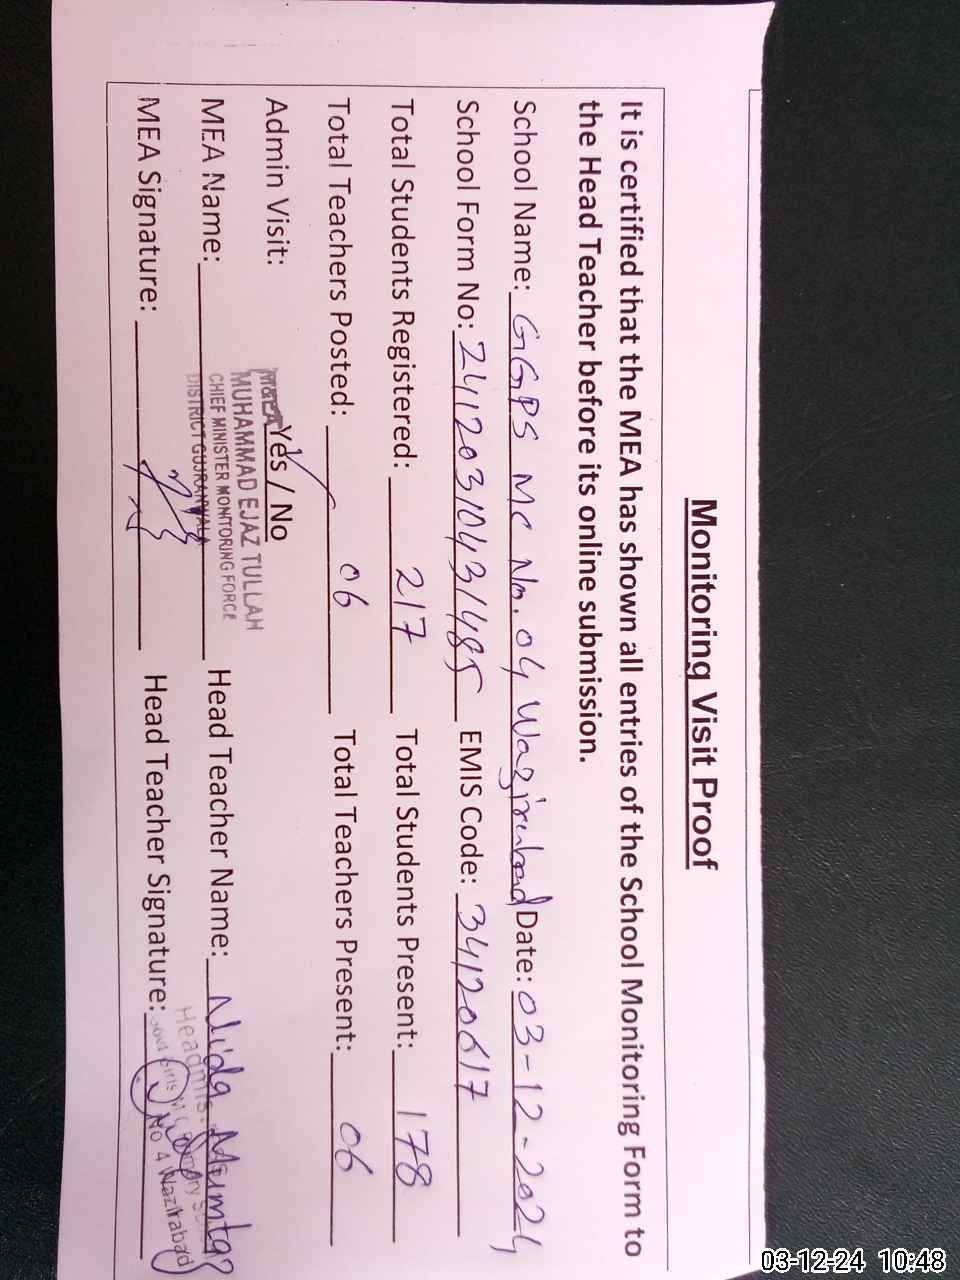 Monitoring Visit Proof
It is certified that the MEA has shown all entries of the School Monitoring Form to
the Head Teacher before its online submission.
School Name: GGPS MC No. 04 Wazirabad Date: 03-12-2024
School Form No: 24120310431485 EMIS Code: 34120617
Total Students Registered: 217 Total Students Present: 178
Total Teachers Posted: 06 Total Teachers Present: 06
Admin Visit: Yes / No
M&EA
MUHAMMAD EJAZ TULLAH
CHIEF MINISTER MONITORING FORCE
DISTRICT GUJRANWALA
MEA Name: Head Teacher Name: Nida Mumtaz
MEA Signature: Head Teacher Signature:
No 4 Wazirabad
03-12-24 10:48